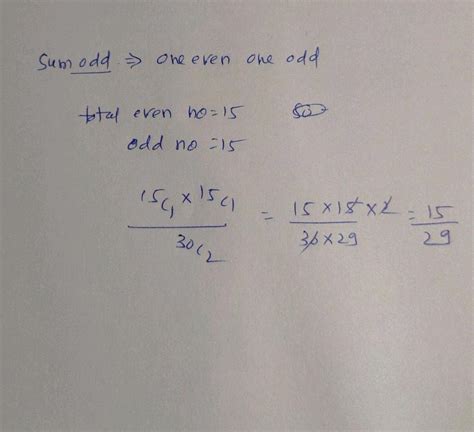 Sum odd ⇒ one even one odd
total even no = 15
odd no = 15
15C1 × 15C1 / 30C2 = 15 × 15 × 2 / 30 × 29 = 15 / 29